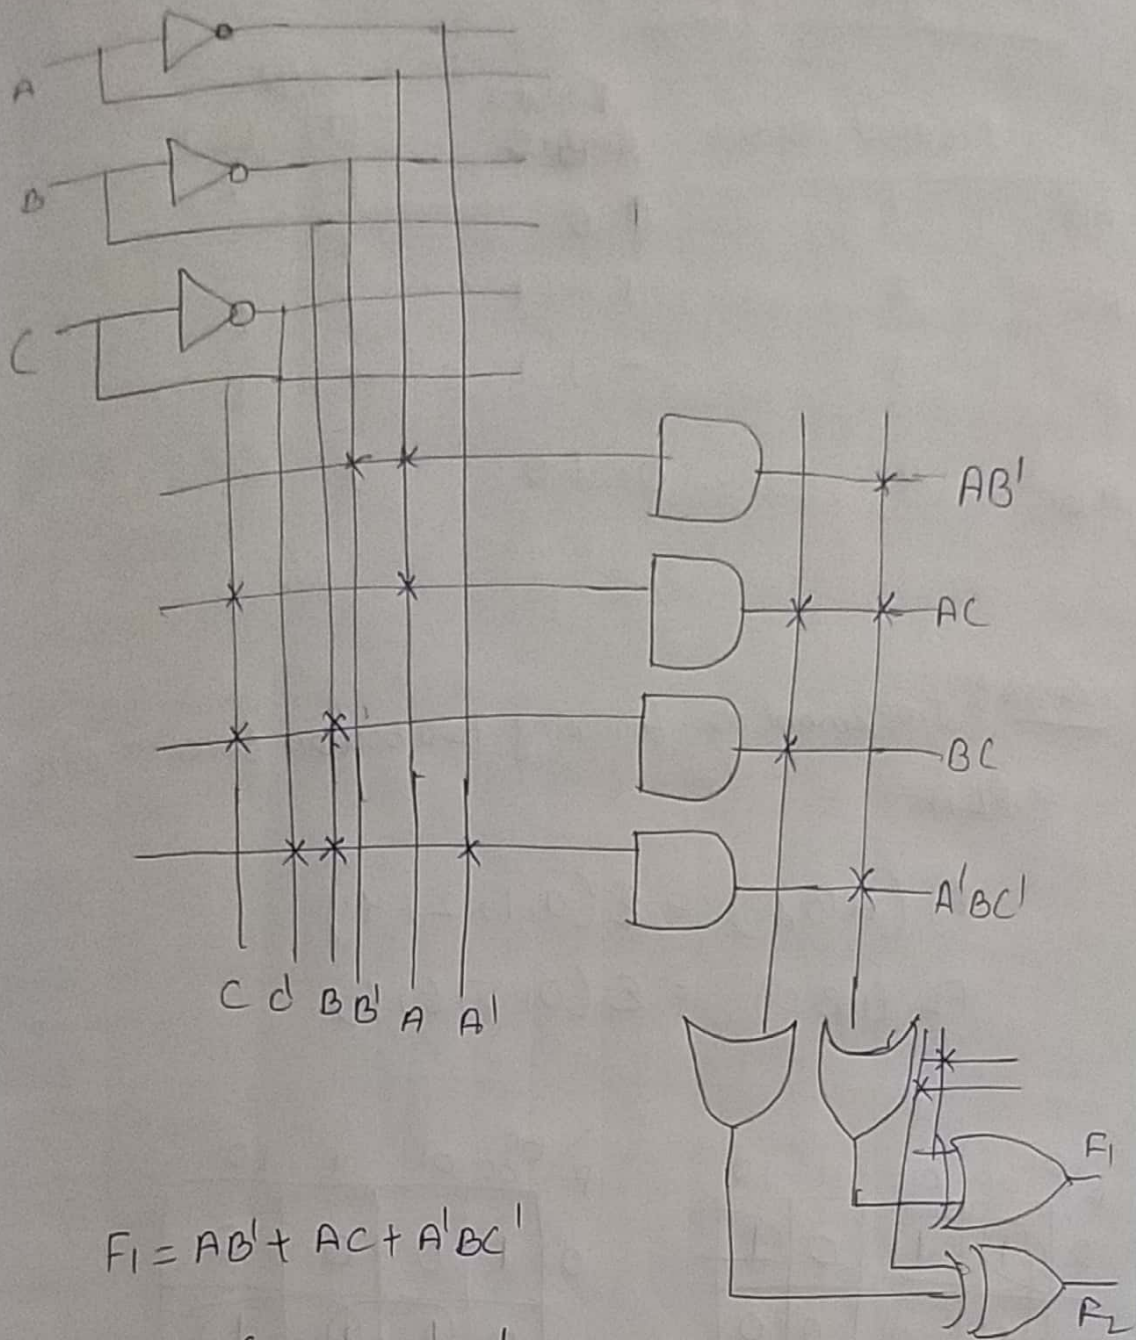 A
B
C
AB'
AC
BC
A'BC'
C C' B B' A A'
F1
F1 = AB' + AC + A'BC'
F2